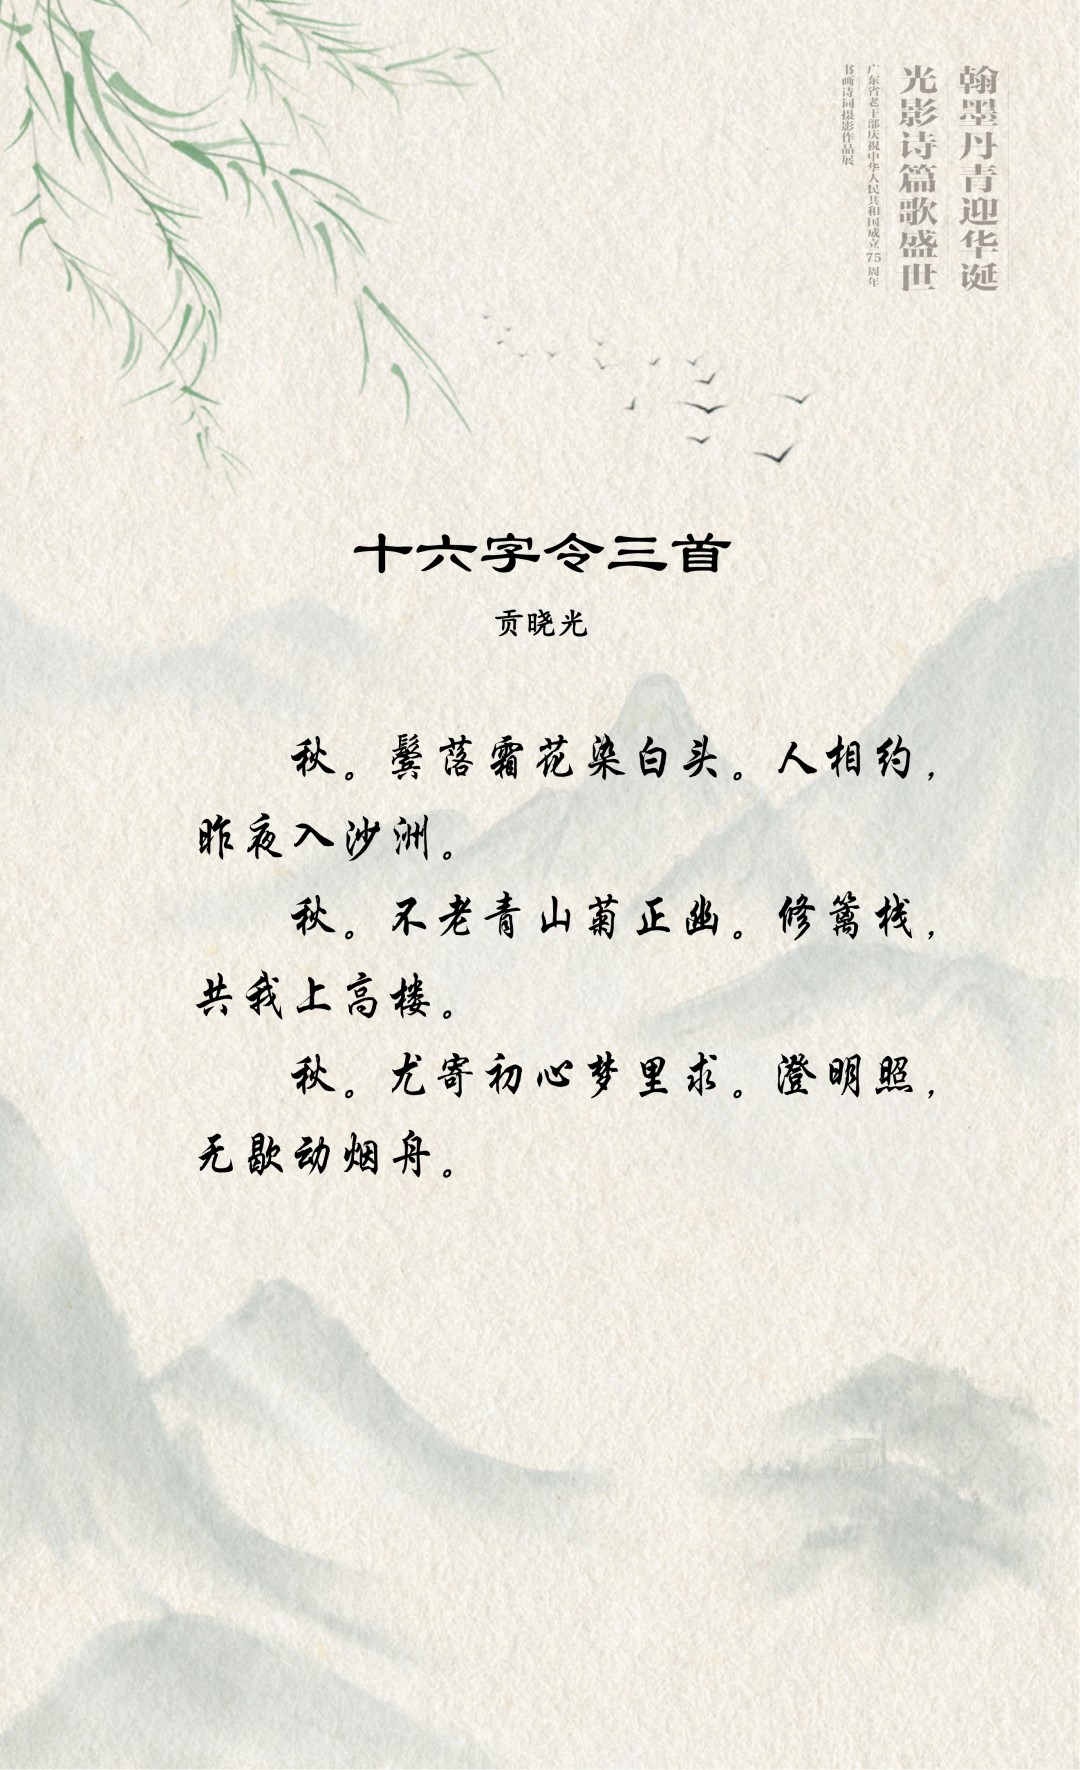 翰墨丹青迎华诞
光影诗篇歌盛世
广东省老干部庆祝中华人民共和国成立75周年
书画诗词摄影作品展
十六字令三首
贡晓光
秋。鬓落霜花染白头。人相约，
昨夜入沙洲。
秋。不老青山菊正幽。修篱栈，
共我上高楼。
秋。尤寄初心梦里求。澄明照，
无歇动烟舟。